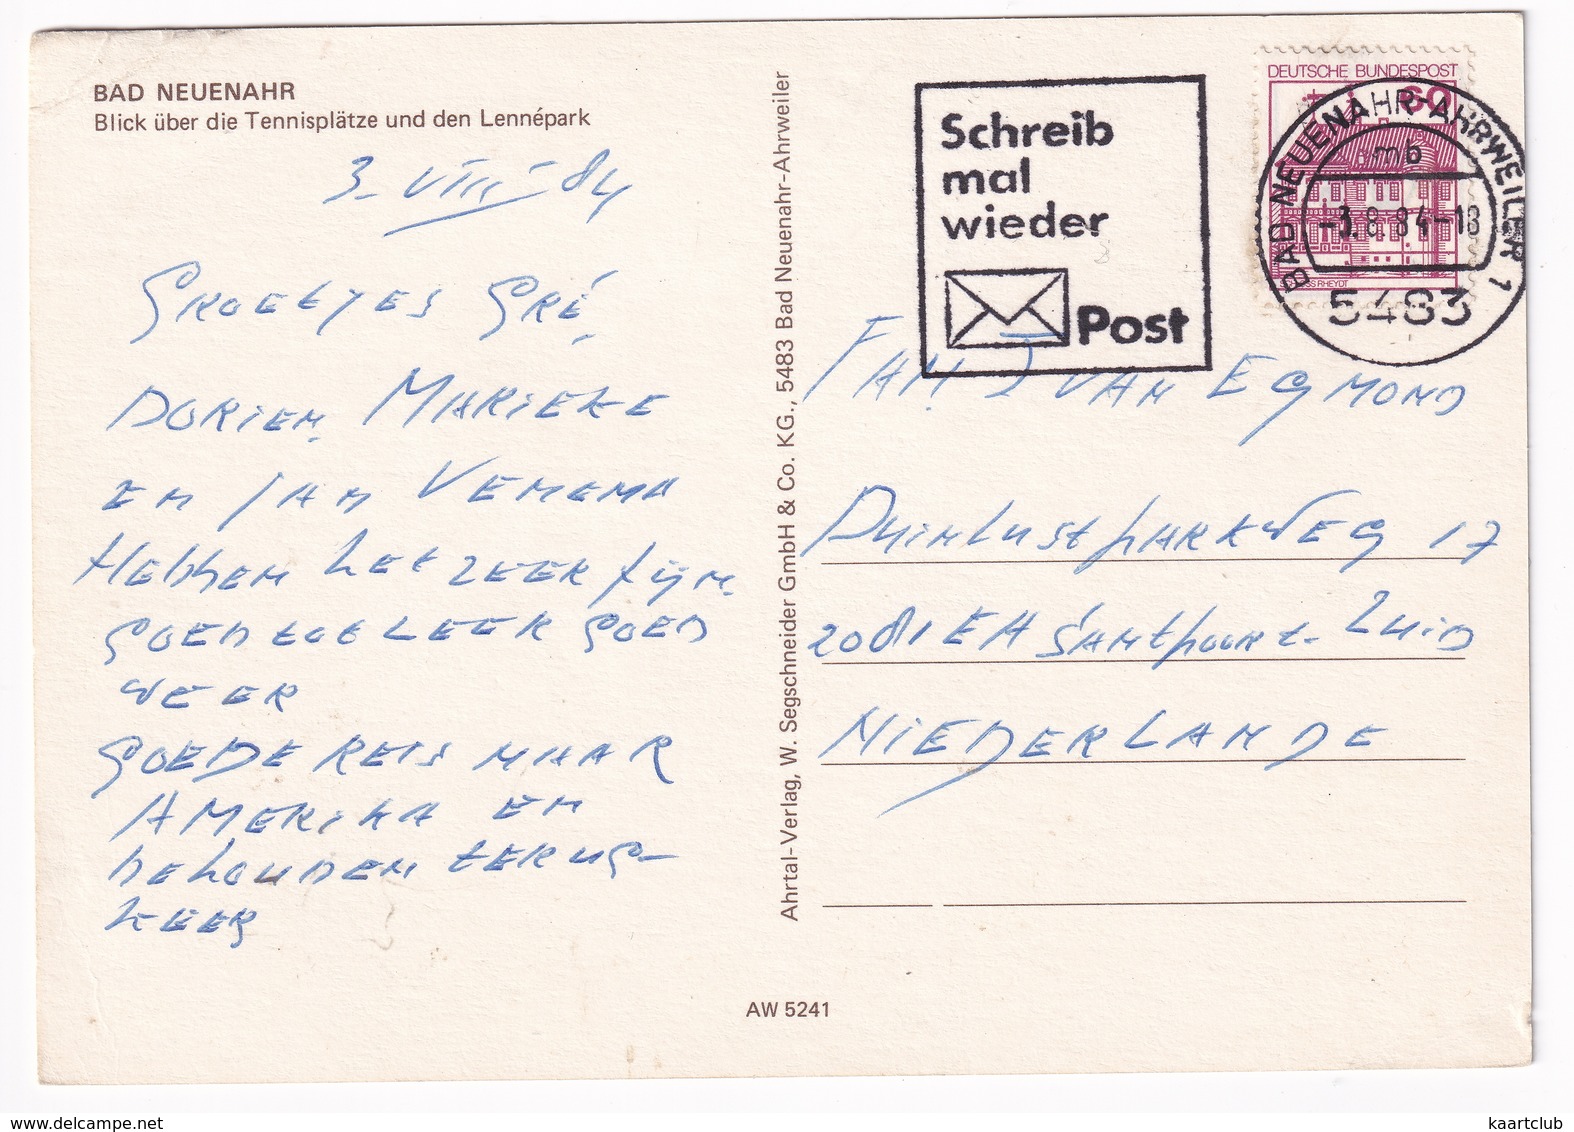 BAD NEUENAHR
Blick über die Tennisplätze und den Lennépark
3-VIII-84
GROETJES GRÉ,
DORIEN, MARIEKE
EN JAN VENEMA
HEBBEN HET ZEER FIJN.
GOED TOT ZEER GOED
WEER
GOEDE REIS NAAR
AMERIKA EN
BEHOUDEN TERUG-
KEER
Ahrtal-Verlag, W. Segschneider GmbH & Co. KG., 5483 Bad Neuenahr-Ahrweiler
AW 5241
Schreib
mal
wieder
Post
DEUTSCHE BUNDESPOST
60
SCHLOSS RHEYDT
BAD NEUENAHR-AHRWEILER 1
mb
-3.8.84-18
5483
FAM J VAN EGMOND
DUINLUSTPARKWEG 17
2081EH SANTPOORT-ZUID
NIEDERLANDE
www.delcampe.net
kaartclub